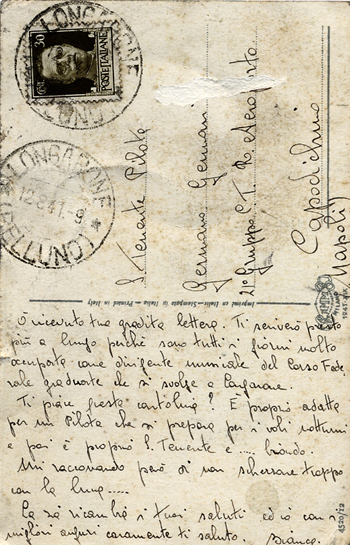 LONGARONE
30
POSTE ITALIANE
LONGARONE
12.8.41.-9
(BELLUNO)
S. Tenente Pilota
Germano Germani
21° Gruppo C. T. R. Aeroporto
Capodichino
(Napoli)
Imprimé en Italie - Stampato in Italia - Printed in Italy
Ò ricevuto tua gradita lettera. Ti scriverò presto
più a lungo perchè sono tutti i giorni molto
occupata come dirigente musicale del Corso Fede
rale graduate che si svolge a Longarone.
Ti piace questa cartolina? È proprio adatta
per un Pilota che si prepara per i voli notturni
e poi è proprio S. Tenente e .... biondo.
Mi raccomando però di non scherzare troppo
con la luna.....
La zia ricambia i tuoi saluti ed io con i
migliori auguri caramente ti saluto. Bianca.
4520/12